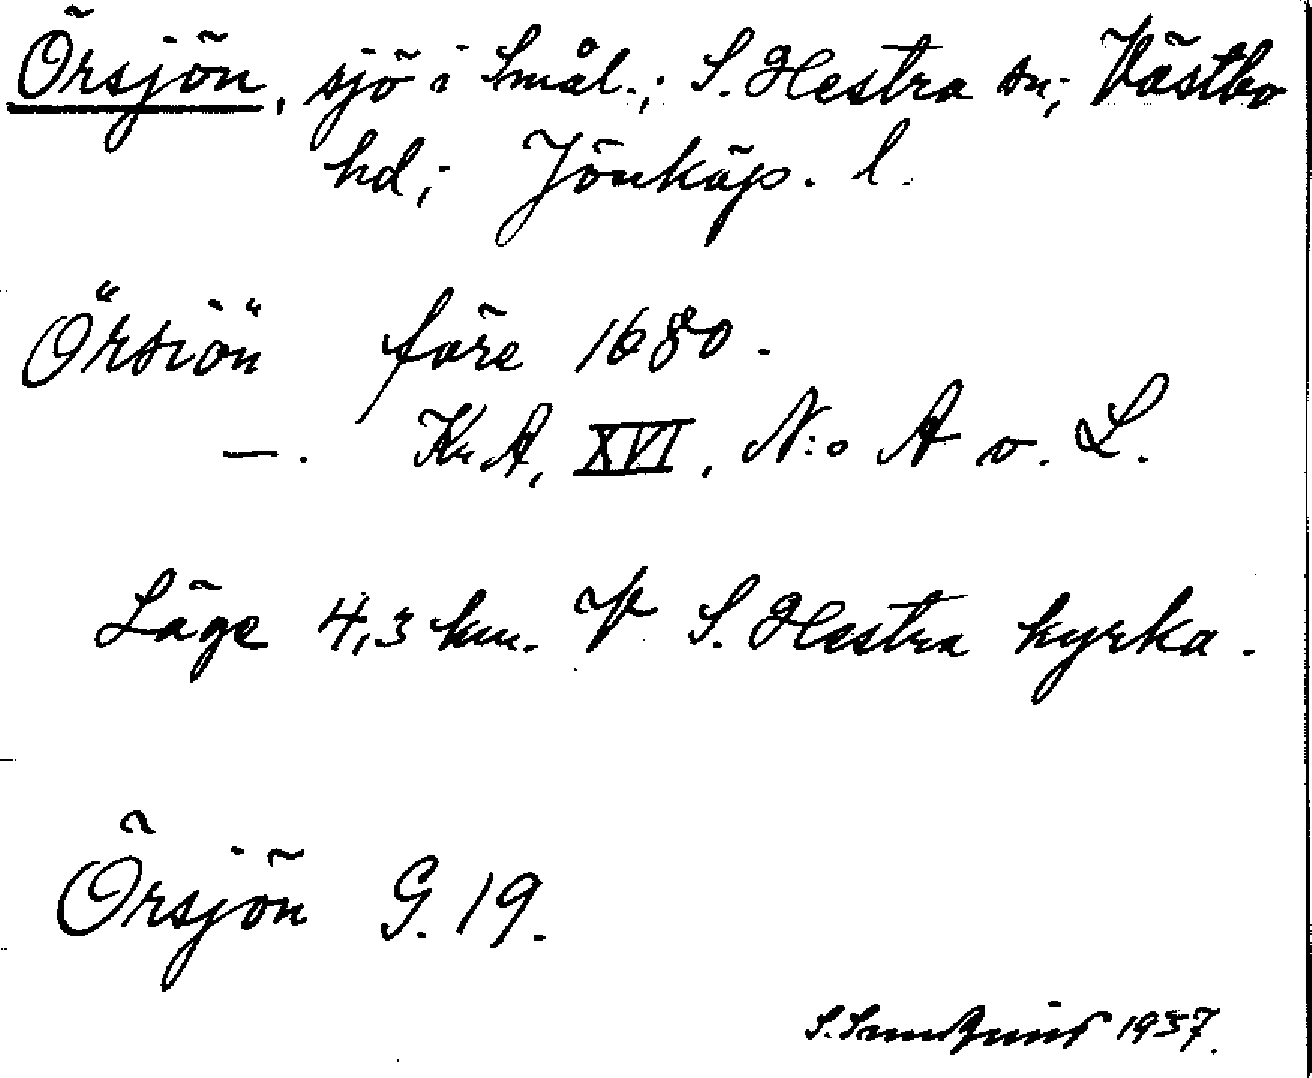 Örsjön, sjö i Smål.; S. Hestra sn; Västbo
hd; Jönköp. l.
Örsiön före 1680.
—. Kr A, XVI, N:o A o. L.
Läge 4,3 km. V S. Hestra kyrka.
Örsjön G. 19.
S. Sundquist 1937.